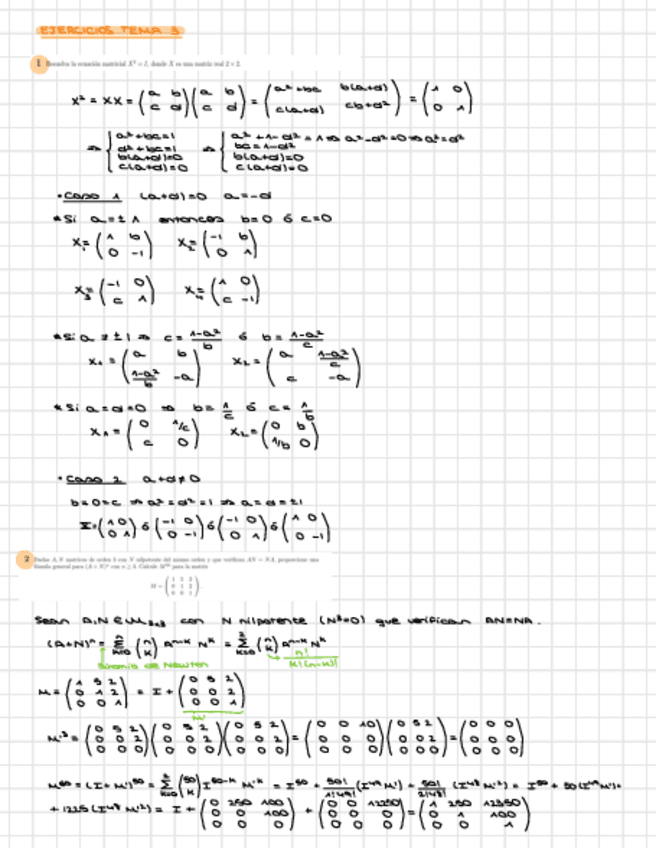 EJERCICIOS TEMA 3
1 Resuelva la ecuación matricial X² = I, donde X es una matriz real 2 × 2.
X² = XX = (a b; c d)(a b; c d) = (a²+bc b(a+d); c(a+d) cb+d²) = (1 0; 0 1)
⇒ { a²+bc=1 ⇒ { a²+1-d²=1 ⇒ a²-d²=0 ⇒ a²=d²
d²+bc=1 bc=1-d²
b(a+d)=0 b(a+d)=0
c(a+d)=0 c(a+d)=0
• Caso 1 (a+d)=0 a=-d
* Si a=±1 entonces b=0 ó c=0
X₁=(1 b; 0 -1) X₂=(-1 b; 0 1)
X₃=(-1 0; c 1) X₄=(1 0; c -1)
* Si a≠±1 ⇒ c=(1-a²)/b ó b=(1-a²)/c
X₁=(a b; (1-a²)/b -a) X₂=(a (1-a²)/c; c -a)
* Si a=d=0 ⇒ b=1/c ó c=1/b
X₁=(0 1/c; c 0) X₂=(0 b; 1/b 0)
• Caso 2 a+d≠0
b=0=c ⇒ a²=d²=1 ⇒ a=d=±1
I=(1 0; 0 1) ó (-1 0; 0 -1) ó (-1 0; 0 1) ó (1 0; 0 -1)
2 Dadas A, N matrices de orden 3 con N nilpotente del mismo orden y que verifican AN = NA, proporcione una
fórmula general para (A + N)ⁿ con n ≥ 3. Calcule M⁵⁰ para la matriz
Sean A,N∈M₃ₓ₃ con N nilpotente (N³=0) que verifican AN=NA.
(A+N)ⁿ = Σ (n k) Aⁿ⁻ᵏ Nᵏ = Σ (n k) Aⁿ⁻ᵏ Nᵏ
Binomio de Newton n!/k!(n-k)!
M=(1 5 2; 0 1 2; 0 0 1) = I + (0 5 2; 0 0 2; 0 0 1)
M'
M'³=(0 5 2; 0 0 2; 0 0 0)(0 5 2; 0 0 2; 0 0 0)(0 5 2; 0 0 2; 0 0 0)=(0 0 10; 0 0 0; 0 0 0)(0 5 2; 0 0 2; 0 0 0)=(0 0 0; 0 0 0; 0 0 0)
M⁵⁰=(I+M')⁵⁰=Σ(50 k) I⁵⁰⁻ᵏ M'ᵏ = I⁵⁰ + 50!/1!49! (I⁴⁹M') + 50!/2!48! (I⁴⁸M'²) = I⁵⁰ + 50(I⁴⁹M')+
+1225(I⁴⁸M'²) = I + (0 250 100; 0 0 100; 0 0 0) + (0 0 12250; 0 0 0; 0 0 0) = (1 250 12350; 0 1 100; 1)